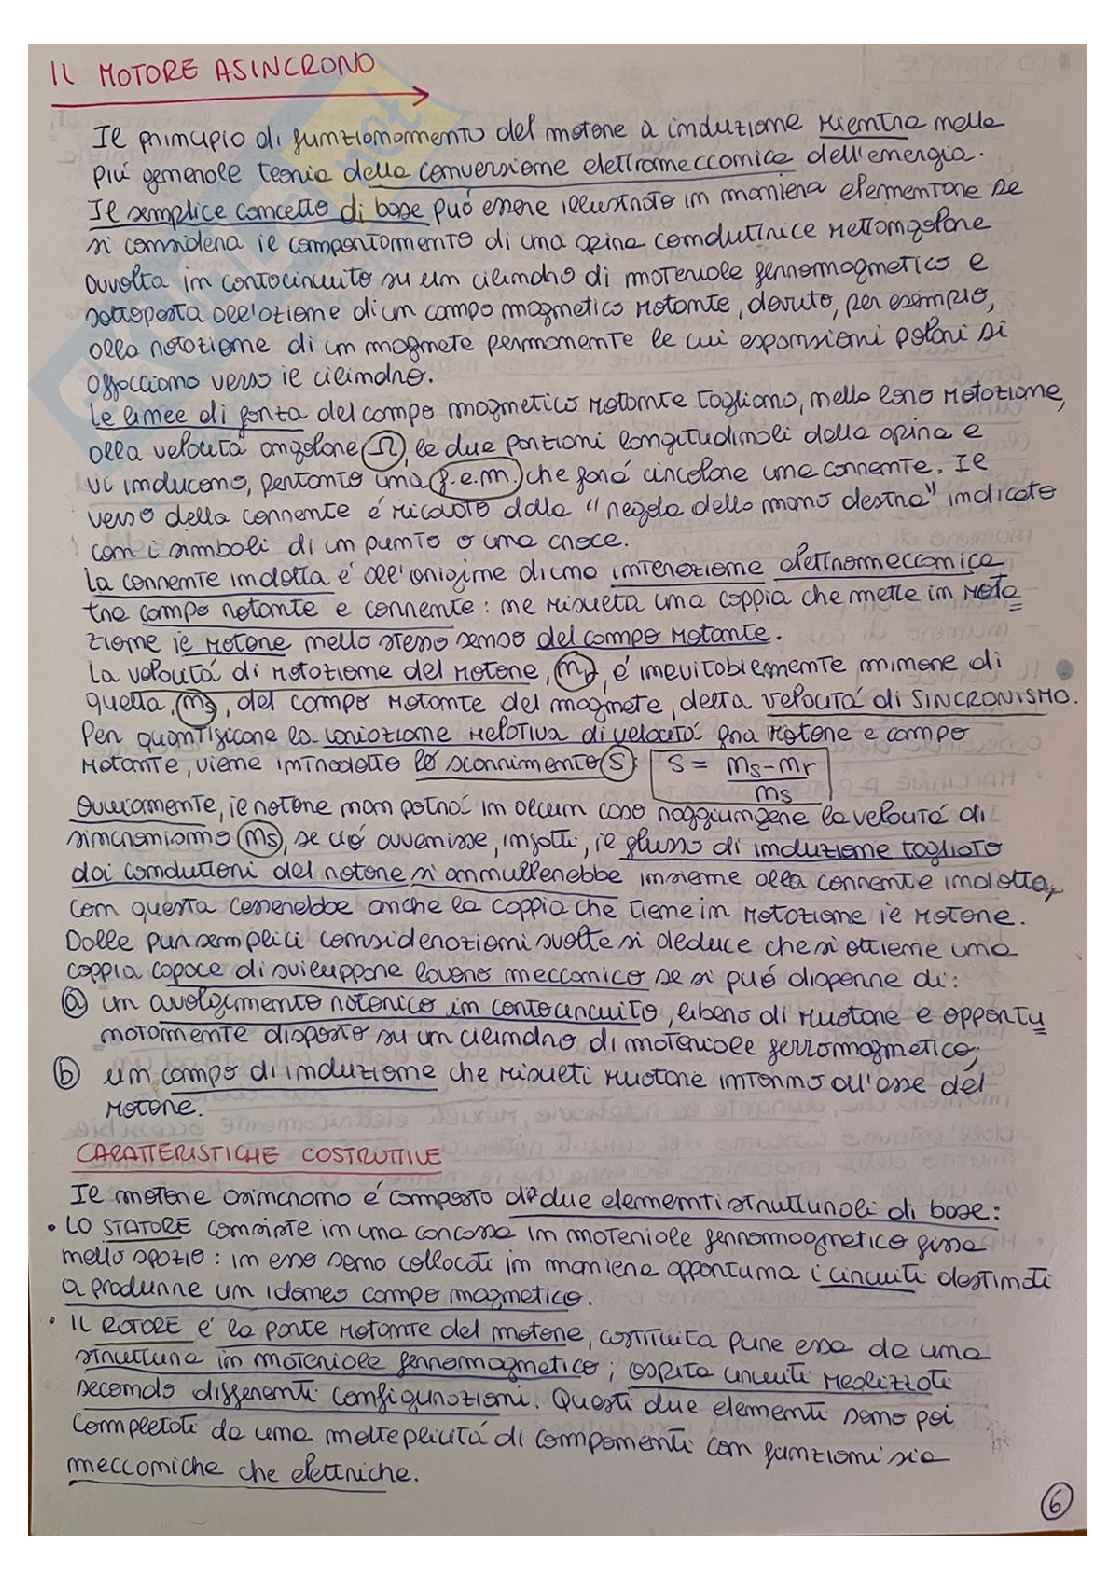 IL MOTORE ASINCRONO
Il principio di funzionamento del motore a induzione rientra nella
più generale teoria della conversione elettromeccanica dell'energia.
Il semplice concetto di base può essere illustrato in maniera elementare se
si considera il comportamento di una spira conduttrice rettangolare
avvolta in cortocircuito su un cilindro di materiale ferromagnetico e
sottoposta all'azione di un campo magnetico rotante, dovuto, per esempio,
alla rotazione di un magnete permanente le cui espansioni polari si
affacciano verso il cilindro.
Le linee di forza del campo magnetico rotante tagliano, nella loro rotazione,
alla velocità angolare Ω, le due porzioni longitudinali della spira e
vi inducono, pertanto una f.e.m. che farà circolare una corrente. Il
verso della corrente è ricavato dalla "regola della mano destra" indicato
con i simboli di un punto o una croce.
La corrente indotta è all'origine di una interazione elettromeccanica
tra campo rotante e corrente: ne risulta una coppia che mette in rota
zione il rotore nello stesso senso del campo rotante.
La velocità di rotazione del rotore, nr, è inevitabilmente minore di
quella, ns, del campo rotante del magnete, detta velocità di SINCRONISMO.
Per quantificare la variazione relativa di velocità fra rotore e campo
rotante, viene introdotto lo scorrimento S: S = ns-nr / ns
Ovviamente, il rotore non potrà in alcun caso raggiungere la velocità di
sincronismo ns, se ciò avvenisse, infatti, il flusso di induzione tagliato
dai conduttori del rotore si annullerebbe insieme alla corrente indotta,
con questa cesserebbe anche la coppia che tiene in rotazione il rotore.
Dalle pur semplici considerazioni svolte si deduce che si ottiene una
coppia capace di sviluppare lavoro meccanico se si può disporre di:
a un avvolgimento rotorico in cortocircuito, libero di ruotare e opportu
natamente disposto su un cilindro di materiale ferromagnetico;
b un campo di induzione che risulti ruotare intorno all'asse del
rotore.
CARATTERISTICHE COSTRUTTIVE
Il motore asincrono è composto da due elementi strutturali di base:
• LO STATORE consiste in una carcassa in materiale ferromagnetico fissa
nello spazio: in esso sono collocati in maniera opportuna i circuiti destinati
a produrre un idoneo campo magnetico.
• IL ROTORE è la parte rotante del motore, costituita pure essa da una
struttura in materiale ferromagnetico; ospita circuiti realizzati
secondo differenti configurazioni. Questi due elementi sono poi
completati da una molteplicità di componenti con funzioni sia
meccaniche che elettriche.
6